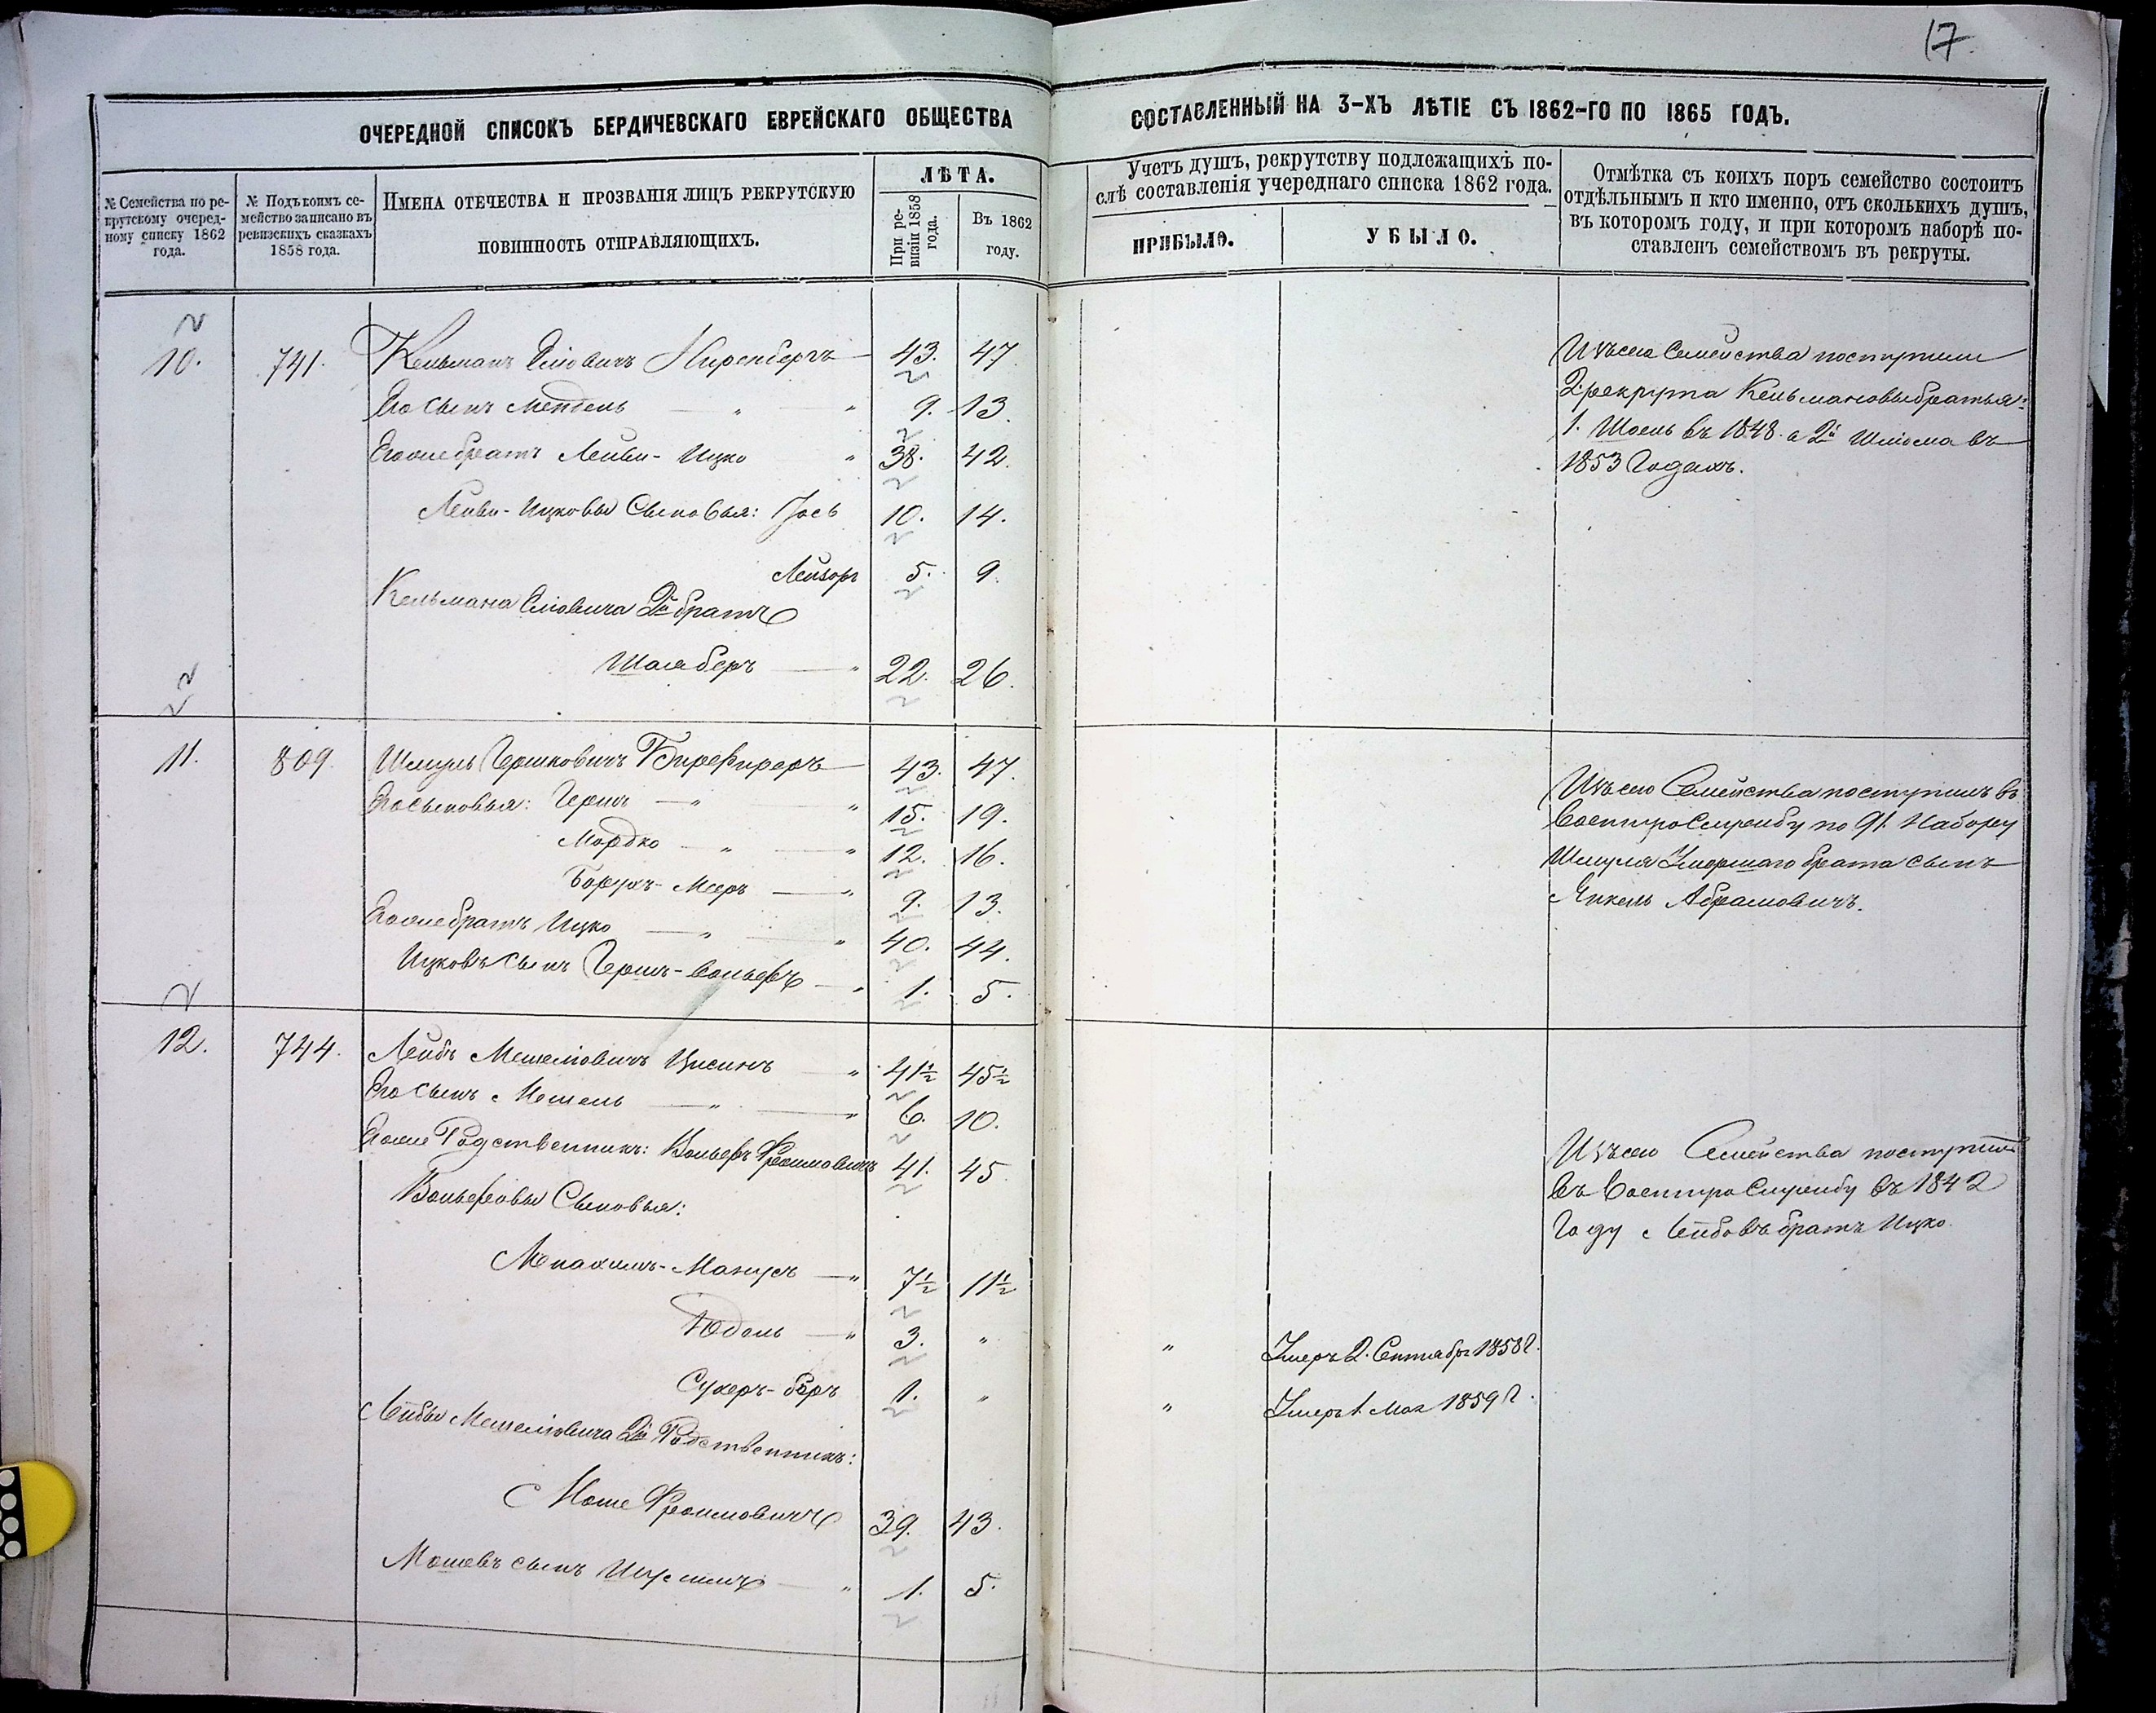 17.
ОЧЕРЕДНОЙ СПИСОКЪ БЕРДИЧЕВСКАГО ЕВРЕЙСКАГО ОБЩЕСТВА
СОСТАВЛЕННЫЙ НА 3-ХЪ ЛѢТІЕ СЪ 1862-ГО ПО 1865 ГОДЪ.
№ Семейства по ре-
крутскому очеред-
ному списку 1862
года.
№ Подъ коимъ се-
мейство записано въ
ревизскихъ сказкахъ
1858 года.
ИМЕНА ОТЕЧЕСТВА И ПРОЗВАНІЯ ЛИЦЪ РЕКРУТСКУЮ
ПОВИННОСТЬ ОТПРАВЛЯЮЩИХЪ.
ЛѢТА.
При ре-
визіи 1858
года.
Въ 1862
году.
Учетъ душъ, рекрутству подлежащихъ по-
слѣ составленія учереднаго списка 1862 года.
ПРИБЫЛО.
УБЫЛО.
Отмѣтка съ коихъ поръ семейство состоитъ
отдѣльнымъ и кто именно, отъ сколькихъ душъ,
въ котором году, и при которомъ наборѣ по-
ставленъ семействомъ въ рекруты.
10. 741. Кельманъ Ниренбергъ 43. 47.
Его сынъ Мендель " " 9. 13.
Его же братъ Лейви-Ицко " 38. 42.
Лейви-Ицковы Сыновья: Іось 10. 14.
Лейзоръ 5. 9.
Кельмана 2й братъ
Шаяберъ " 22. 26.
Изъ сего Семейства поступили
2 рекрута Кельмановы братья:
1. Шоель въ 1848. а 2й Шлiома въ
1853 Годахъ.
11. 809. Шмуль Гершковичъ Бирефиреръ 43. 47.
Его сыновья: Гершъ " " 15. 19.
Мордко " " 12. 16.
Борухъ-Мееръ " 9. 13.
Его же братъ Ицко " " 40. 44.
Ицковъ сынъ Гершъ-Вольфъ " 1. 5.
Изъ сего Семейства поступилъ въ
Военную Службу по 91. Набору
Шмуля Умершаго брата сынъ
Янкель Абрамовичъ.
12. 744. Лейбъ Мешелiовичъ " 41½ 45½
Его сынъ Мошель " " 6. 10.
Его же Родственникъ: Вольфъ Фроимовичъ 41. 45
Вольфовы Сыновья:
Менахимъ-Манусъ " 7½ 11½
Юдель " 3. " " Умеръ 2. Сентября 1858 г.
Сухеръ-беръ 1. " " Умеръ 1. Мая 1859 г.
Лейбы Мешелiовича 2й Родственникъ:
Моше Фроимовичъ 39. 43.
Мошевъ сынъ " 1. 5.
Изъ сего Семейства поступилъ
въ Военную Службу въ 1842
Году Лейбовъ братъ Ицко.